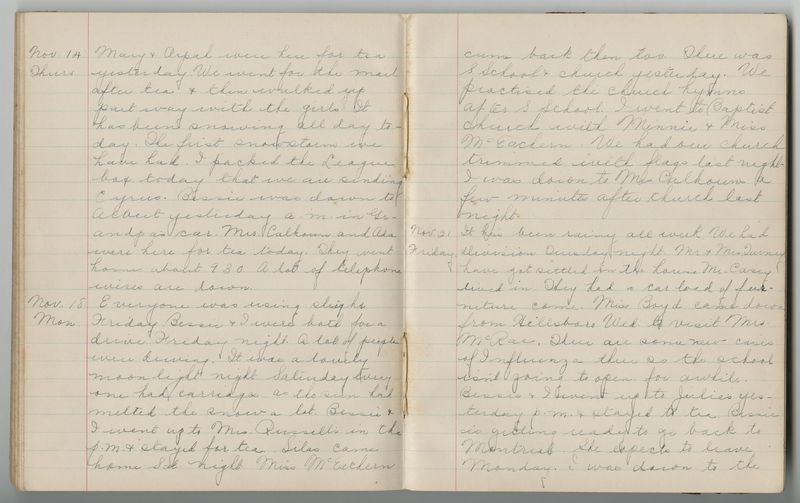 Nov. 14 Mary & Opal were here for tea
Thurs yesterday. We went for the mail
after tea & then walked up
part way with the girls. It
has been snowing all day to-
day. The first snowstorm we
have had. I packed the League
box today that we are sending
Cyrus. Bessie was down to
Albert yesterday a.m. in Gr-
andpa's car. Mrs. Calhoun and Ada
were here for tea today. They went
home about 9.30 A lot of telephone
wires are down.
Nov. 18 Everyone was using sleighs
Mon. Friday. Bessie & I were both for a
drive Friday night. A lot of people
were driving. It was a lovely
moonlight night. Saturday every
one had carriages as the sun had
melted the snow a lot. Bessie &
I went up to Mrs. Russell's in the
p.m. & stayed for tea. Silas came
home Sat. night. Miss McEachern
came back then too. There was
S School & church yesterday. We
practised the church hymns
after S School. I went to Baptist
church with Minnie & Miss
McEachern. We had our church
trimmed with flags last night.
I was down to Mrs Calhoun's a
few minutes after church last
night.
Nov. 21 It has been rainy all week. We had
Friday division Tuesday night. Mr. & Mrs.
have got settled in the house Mr. Casey
lived in. They had a car load of fur-
niture come. Miss Boyd came down
from Hillsboro Wed. to visit Mrs.
McRae. There are some new cases
of Influenza there so the school
isn't going to open for awhile.
Bessie & I went up to Julia's yes-
terday p.m. & stayed to tea. Bessie
is getting ready to go back to
Montreal. She expects to leave
Monday. I was down to the